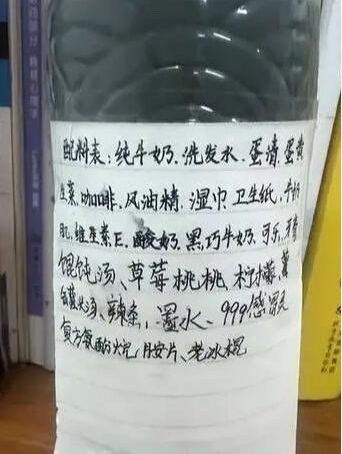 配料表:纯牛奶.洗发水.蛋清.蛋黄
生菜.咖啡.风油精.湿巾卫生纸.牛奶
肌.维生素E.酸奶.黑.巧牛奶.可乐.牙膏
馄饨汤、草莓桃桃、柠檬
蛋汤、辣条、墨水、999感冒灵
复方氨酚烷胺片、老冰棍